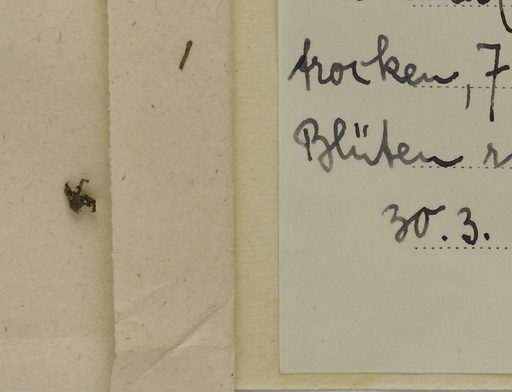 trocken, 7
Blüten r
30.3.